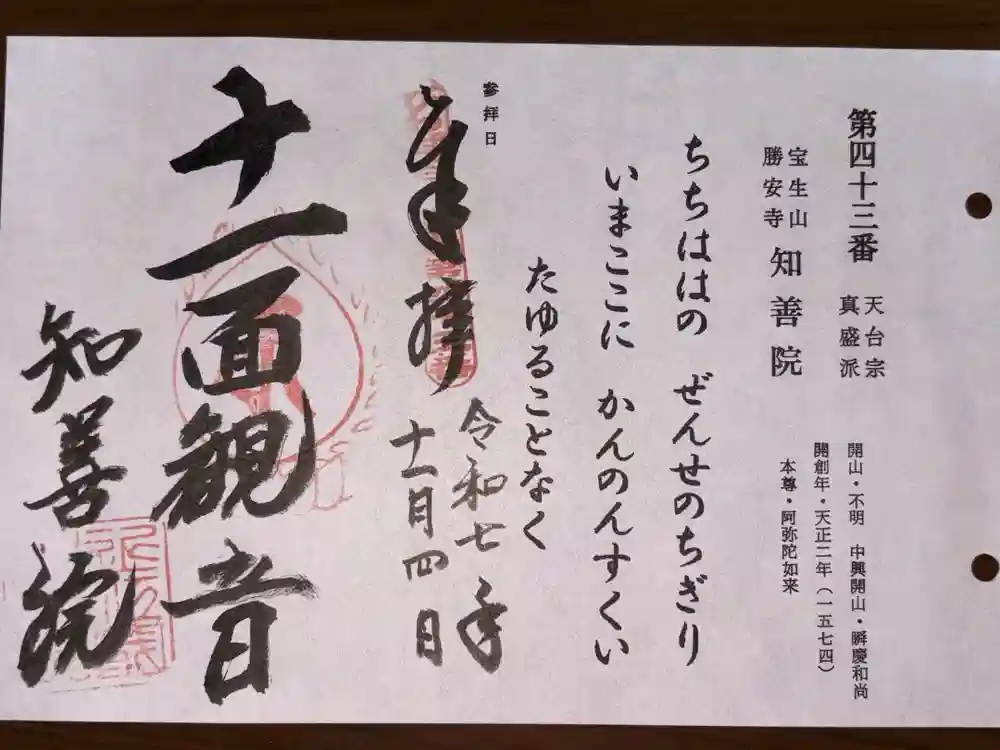 第四十三番
天台宗
真盛派
宝生山
勝安寺
知善院
開山・不明 中興開山・瞬慶和尚
開創年・天正二年(一五七四)
本尊・阿弥陀如来
ちちははの ぜんせのちぎり
いまここに かんのんすくい
たゆることなく
参拝日
奉拝
令和七年
十一月四日
十一面観音
知善院